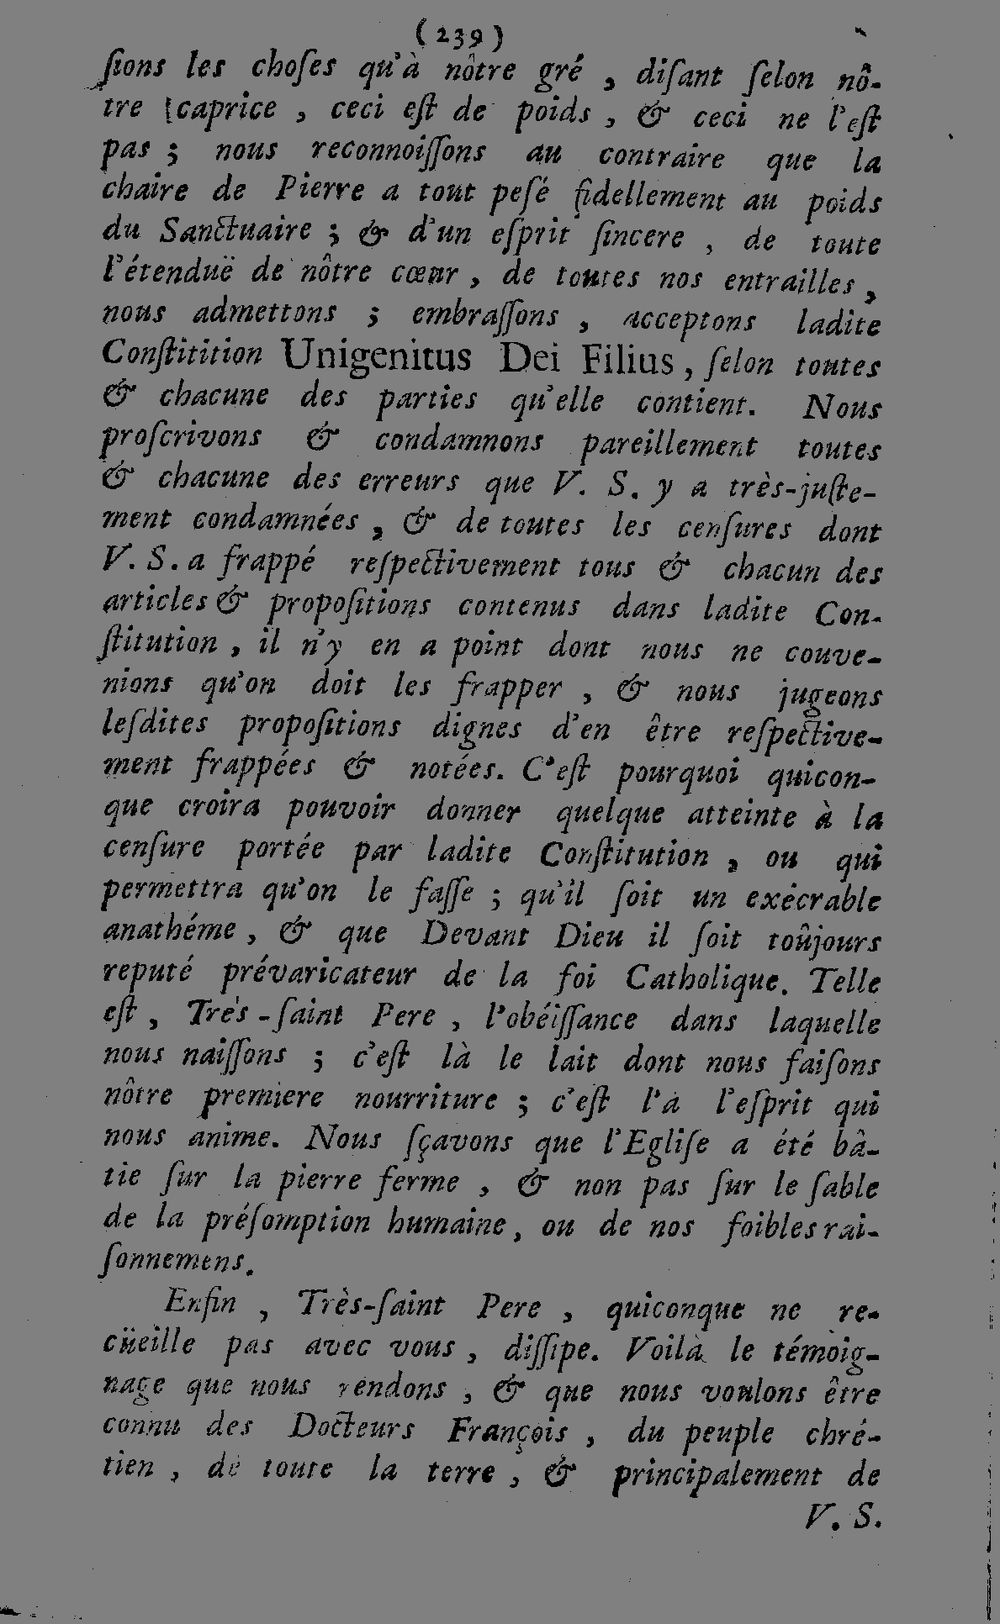 (239)
ſions les choſes qu'à nôtre gré , diſant ſelon nô-
tre caprice , ceci eſt de poids , & ceci ne l'eſt
pas ; nous reconnoiſſons au contraire que la
chaire de Pierre a tout peſé fidellement au poids
du Sanctuaire ; & d'un eſprit ſincere , de toute
l'étenduë de nôtre cœur , de toutes nos entrailles ,
nous admettons ; embraſſons , acceptons ladite
Conſtitition Unigenitus Dei Filius , ſelon toutes
& chacune des parties qu'elle contient. Nous
proſcrivons & condamnons pareillement toutes
& chacune des erreurs que V. S. y a très-juſte-
ment condamnées , & de toutes les cenſures dont
V. S. a frappé reſpectivement tous & chacun des
articles & propoſitions contenus dans ladite Con-
ſtitution , il n'y en a point dont nous ne couve-
nions qu'on doit les frapper , & nous jugeons
leſdites propoſitions dignes d'en être reſpective-
ment frappées & notées. C'eſt pourquoi quicon-
que croira pouvoir donner quelque atteinte à la
cenſure portée par ladite Conſtitution , ou qui
permettra qu'on le faſſe ; qu'il ſoit un exécrable
anathéme , & que Devant Dieu il ſoit toûjours
reputé prévaricateur de la foi Catholique. Telle
eſt , Très-ſaint Pere , l'obéiſſance dans laquelle
nous naiſſons ; c'eſt là le lait dont nous faiſons
nôtre premiere nourriture ; c'eſt l'à l'eſprit qui
nous anime. Nous ſçavons que l'Egliſe a été bâ-
tie ſur la pierre ferme , & non pas ſur le ſable
de la préſomption humaine, ou de nos foibles rai-
ſonnemens.
Enfin , Très-ſaint Pere , quiconque ne re-
cüeille pas avec vous , diſſipe. Voilà le témoig-
nage que nous rendons , & que nous voulons être
connu des Docteurs François , du peuple chré-
tien , de toute la terre , & principalement de
V. S.